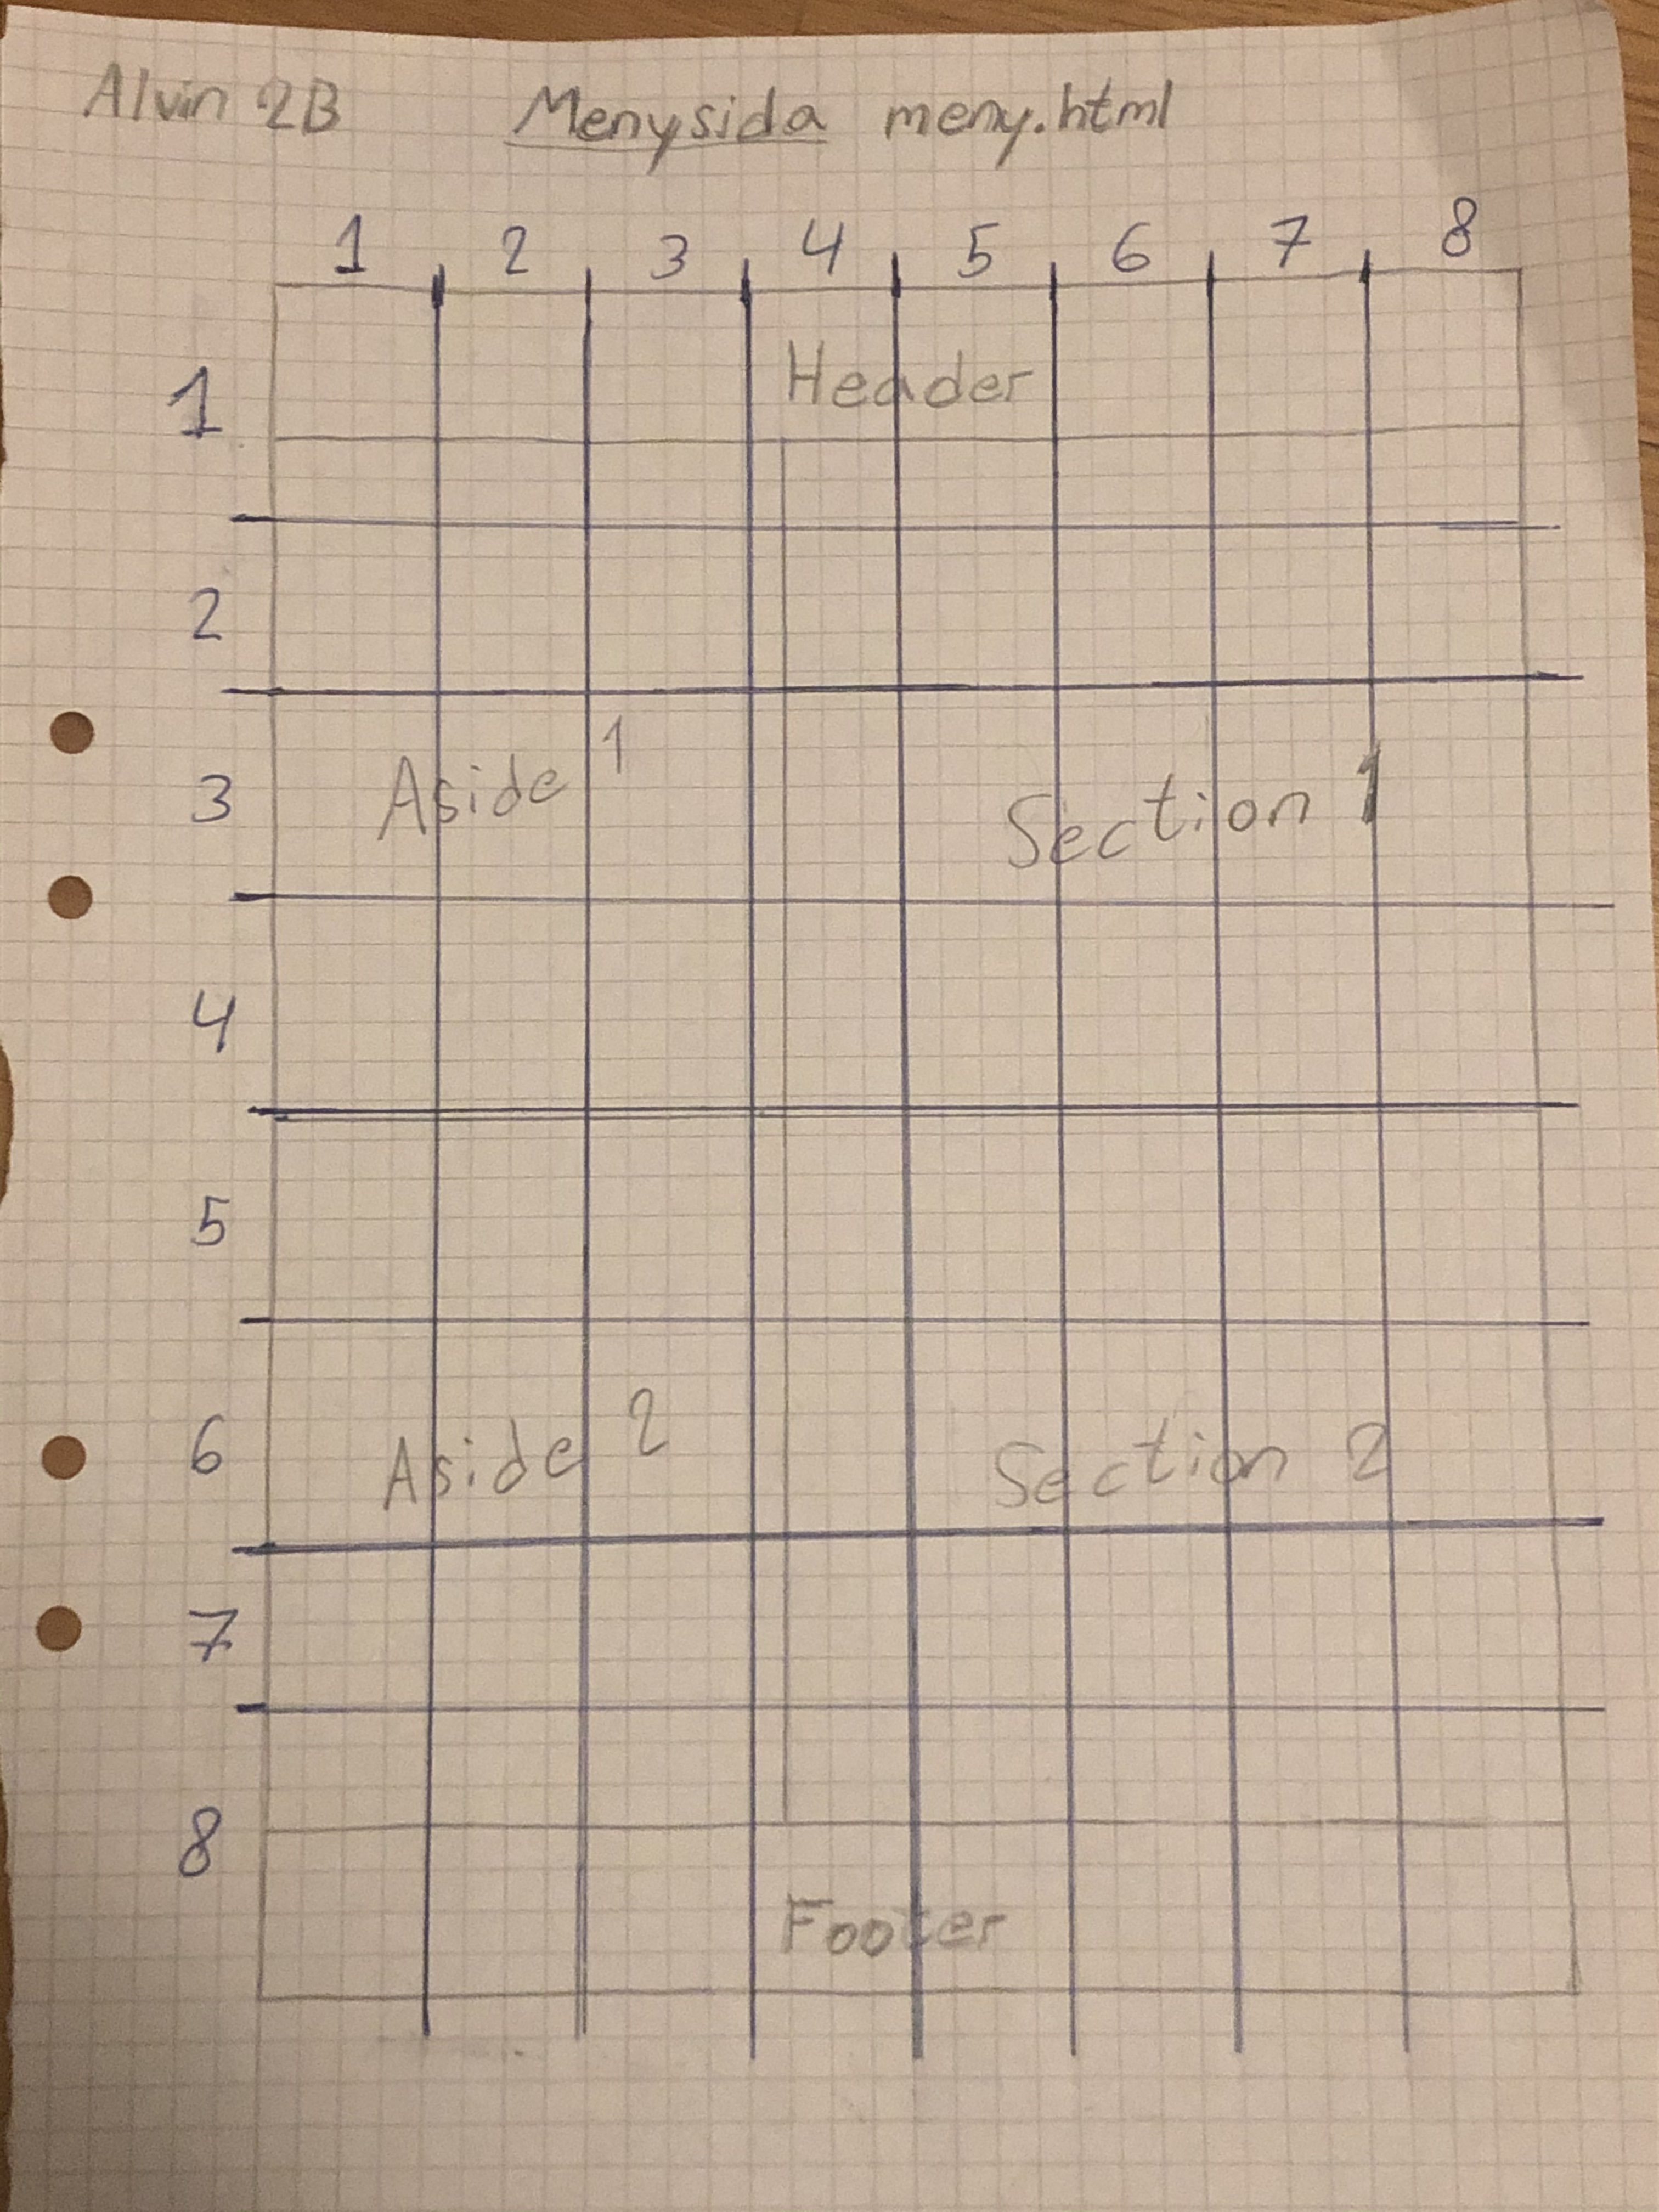 Alvin 2B Menysida meny.html
1 2 3 4 5 6 7 8
1 Header
2
3 Aside 1 Section 1
4
5
6 Aside 2 Section 2
7
8
Footer